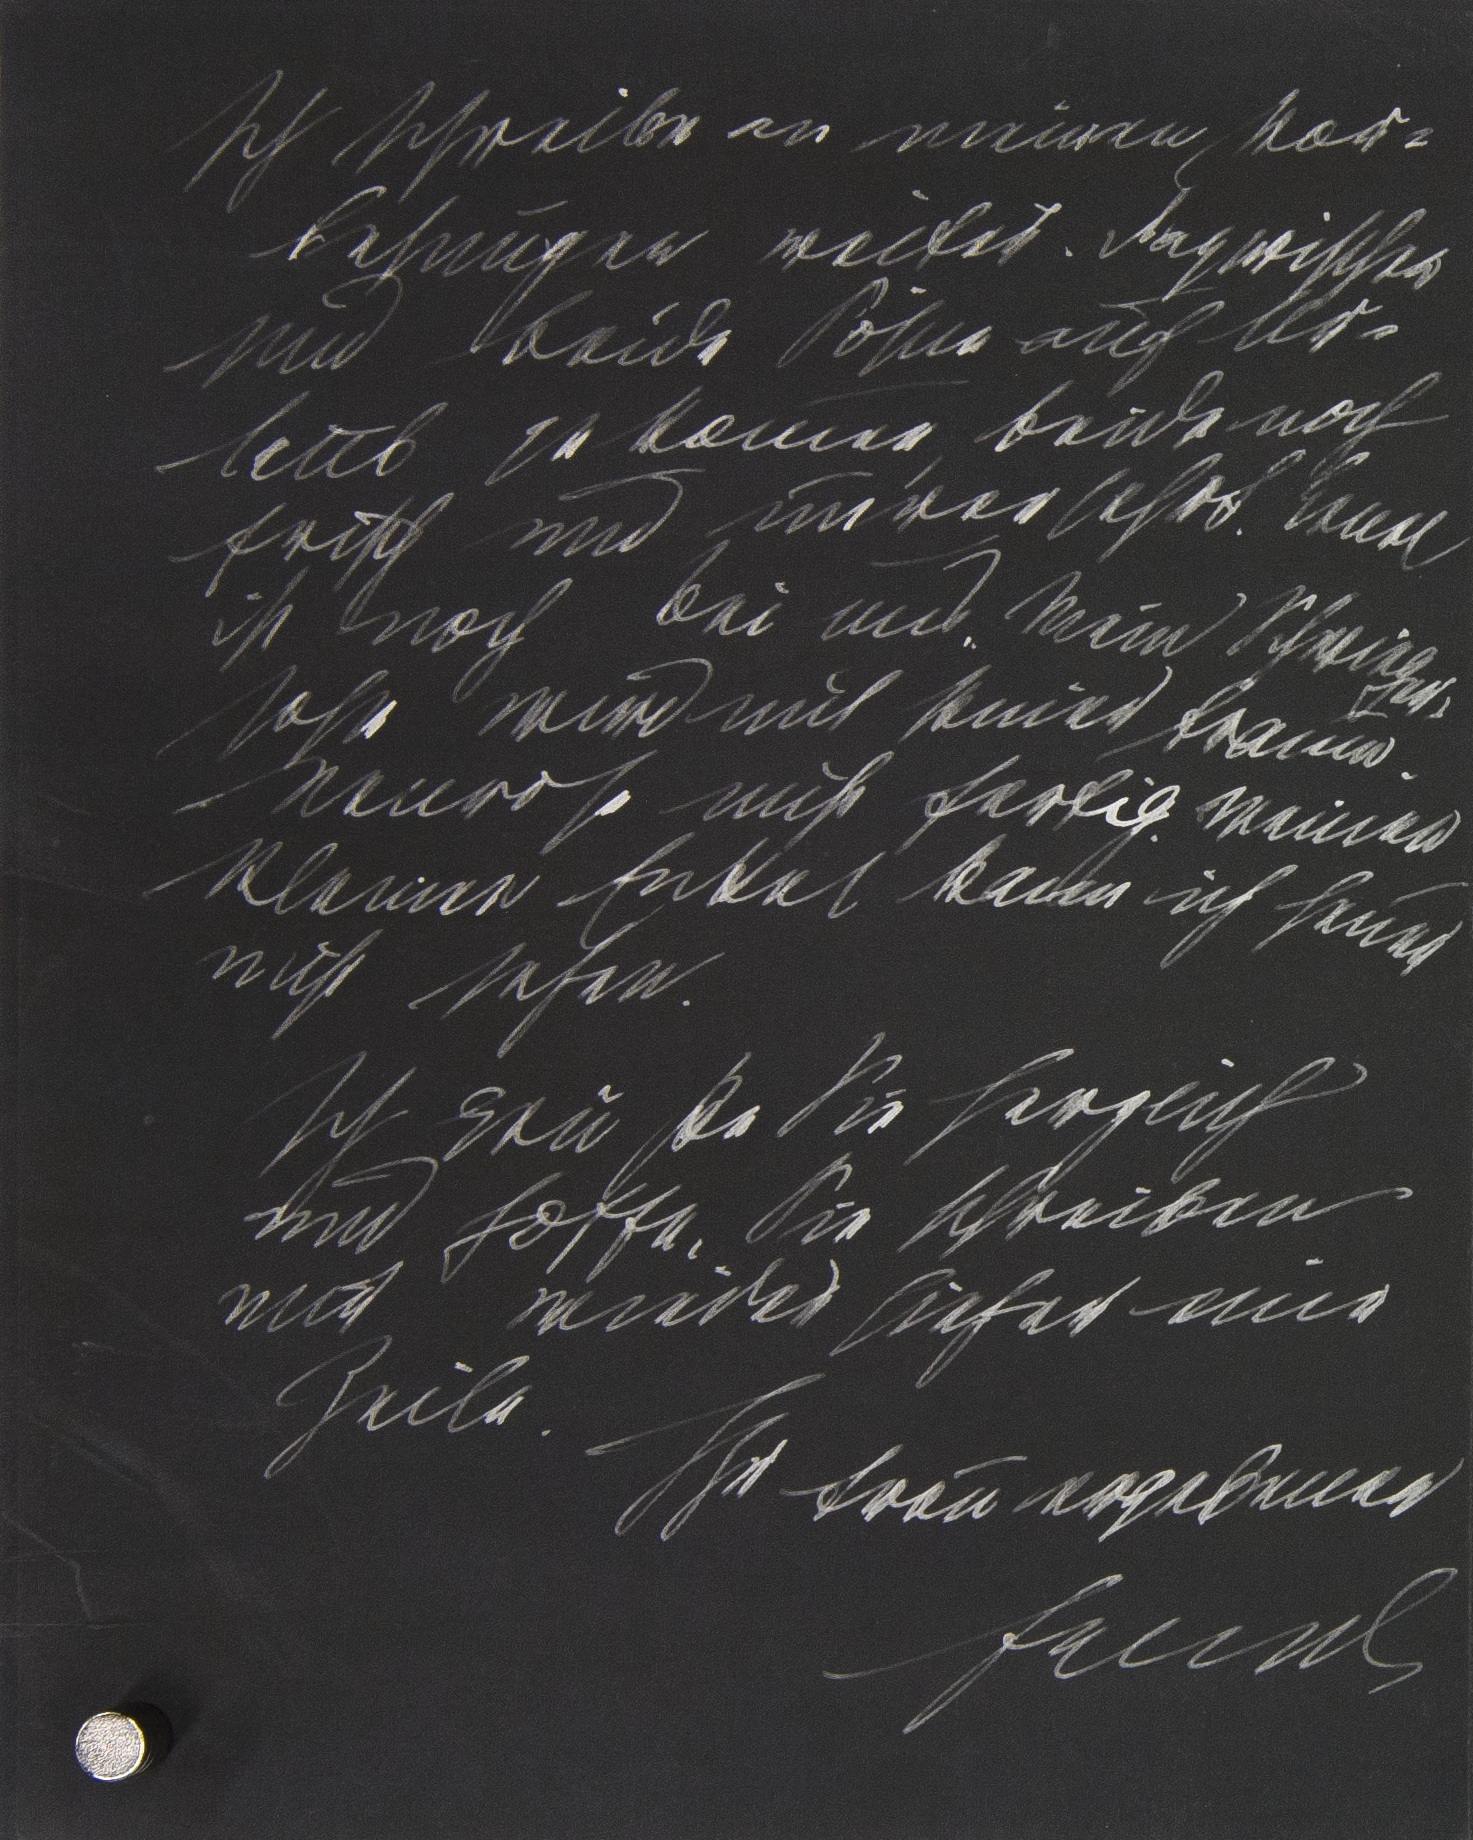 Ich schreibe an meinen Vor=
lesungen weiter. Dazwischen
sind beide Söhne auf Ur=
laub gekommen, beide noch
frisch und unversehrt. Ernst
ist noch bei uns. Mein Schwieger-
sohn wird mit seiner Traum-
neurose nicht fertig. Meinen
kleinen Enkel kann ich heuer
nicht sehen.
Ich grüße Sie herzlich
und hoffe, Sie schreiben
wieder eine
Zeile.
Ihr treu ergebener
Freud